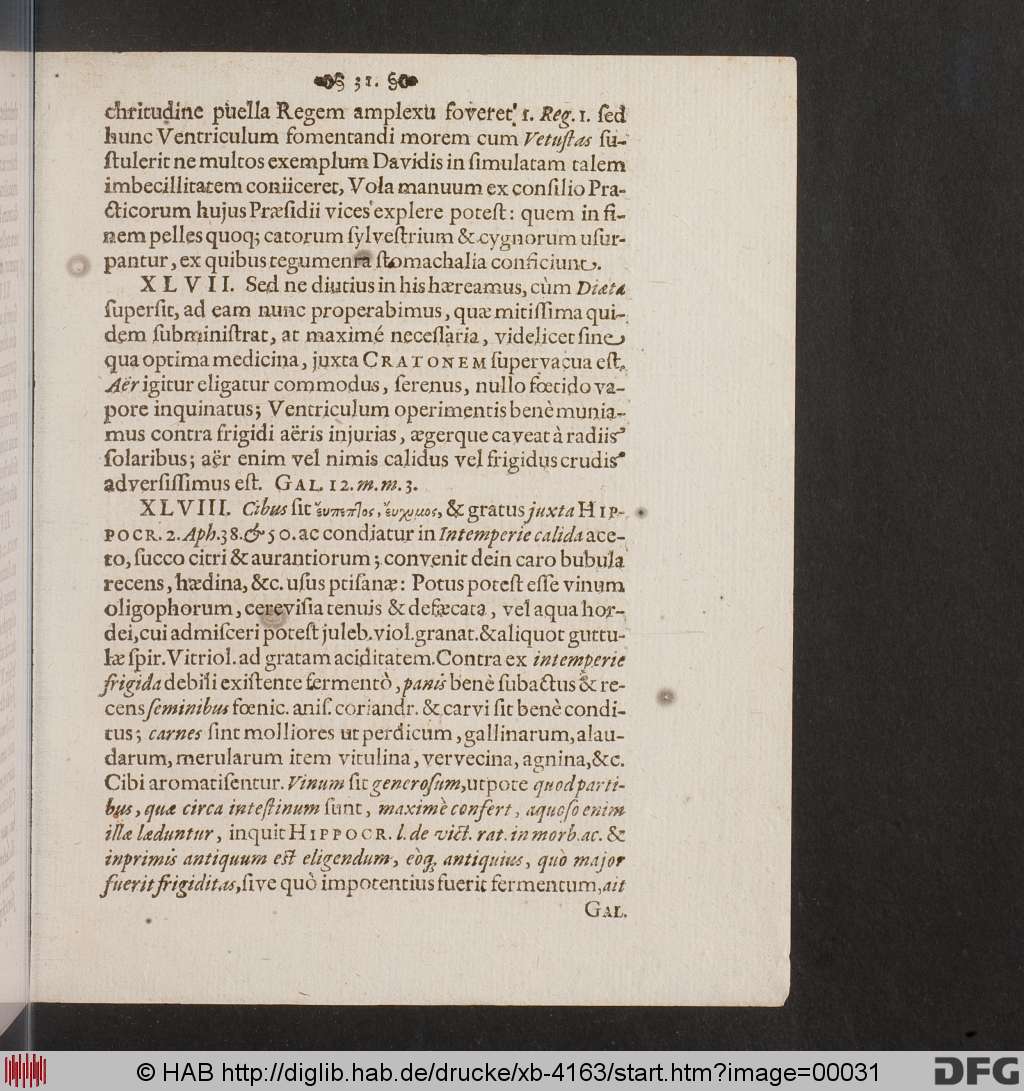 31.
chritudine puella Regem amplexu foveret. 1. Reg. 1. ſed
hunc Ventriculum fomentandi morem cum Vetuſtas ſu-
ſtulerit ne multos exemplum Davidis in ſimulatam talem
imbecillitatem coniiceret, Vola manuum ex conſilio Pra-
cticorum hujus Præſidii vices explere poteſt: quem in fi-
nem pelles quoq; catorum ſylveſtrium & cygnorum uſur-
pantur, ex quibus tegumenta ſtomachalia conficiunt.
XLVII. Sed ne diutius in his hæreamus, cùm Diæta
ſuperſit, ad eam nunc properabimus, quæ mitiſſima qui-
dem ſubminiſtrat, at maximé neceſſaria, videlicet ſine
qua optima medicina, juxta CRATONEM ſupervacua eſt.
Aër igitur eligatur commodus, ſerenus, nullo fœtido va-
pore inquinatus; Ventriculum operimentis benè munia-
mus contra frigidi aëris injurias, ægerque caveat à radiis
ſolaribus; aër enim vel nimis calidus vel frigidus crudis
adverſiſſimus eſt. GAL. 12. m. m. 3.
XLVIII. Cibus ſit ἔυπεπτος, ἔυχυμος, & gratus juxta HIP-
POCR. 2. Aph. 38. & 50. ac condiatur in Intemperie calida ace-
to, ſucco citri & aurantiorum; convenit dein caro bubula
recens, hædina, &c. uſus ptiſanæ: Potus poteſt eſſe vinum
oligophorum, cereviſia tenuis & defæcata, vel aqua hor-
dei, cui admiſceri poteſt juleb. viol. granat. & aliquot guttu-
læ ſpir. Vitriol. ad gratam aciditatem. Contra ex intemperie
frigida debili exiſtente fermentò, panis benè ſubactus & re-
cens ſeminibus fœnic. aniſ. coriandr. & carvi ſit benè condi-
tus; carnes ſint molliores ut perdicum, gallinarum, alau-
darum, merularum item vitulina, vervecina, agnina, &c.
Cibi aromatiſentur. Vinum ſit generoſum, utpote quod parti-
bus, quæ circa inteſtinum ſunt, maximè confert, aquoſo enim
illæ læduntur, inquit HIPPOCR. l. de vict. rat. in morb. ac. &
inprimis antiquum eſt eligendum, eòq; antiquius, quò major
fuerit frigiditas, ſive quò impotentius fuerit fermentum, ait
GAL.
© HAB http://diglib.hab.de/drucke/xb-4163/start.htm?image=00031
DFG